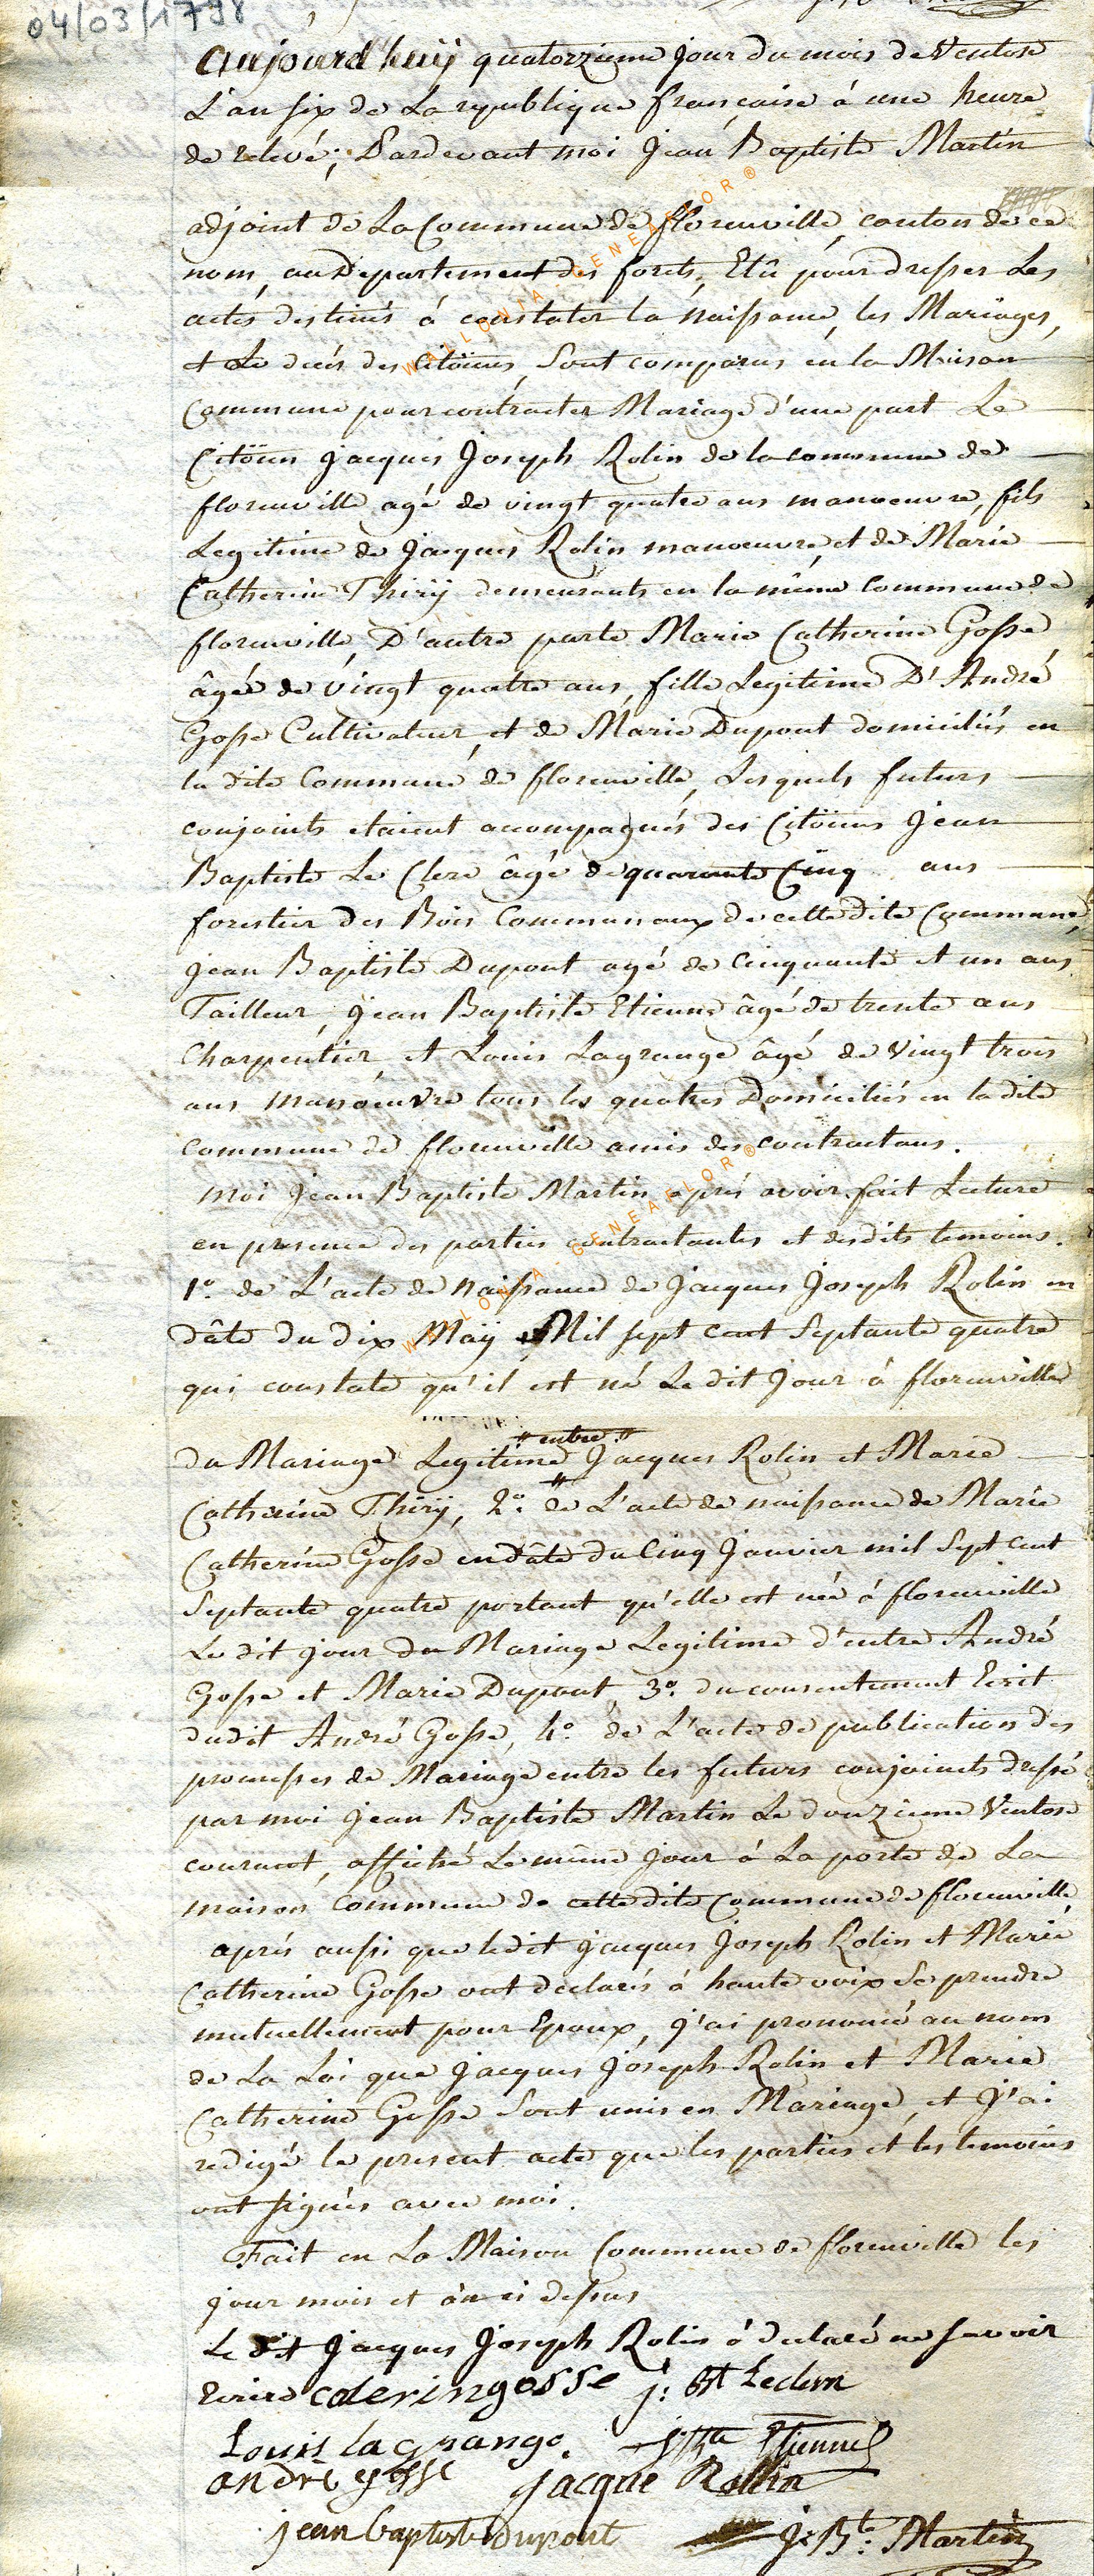 04/03/1798
aujourd'huÿ quatorzieme jour du mois de Ventose
L'an six de La republique francaise á une heure
de relevé; Pardevant moi Jean Baptiste Martin
adjoint de La Commune de florenville, canton de ce
nom, au Departement des forets, Elû pour dresser Les
actes destinés á constater la Naissance, les Mariages,
et Le decés des Citöiens, Sont comparus en la Maison
Commune pour contracter Mariage d'une part Le
Citöien Jacques Joseph Rolin de la commune de
florenville agé de vingt quatre ans manoeuvre, fils
Legitime de Jacques Rolin manoeuvre, et de Marie
Catherine Thirÿ demeurants en la même Commune de
florenville, D'autre parte Marie Catherine Gosse
âgée de vingt quatre ans, fille Legitime D'André
Gosse Cultivateur, et de Marie Dupont domiciliés en
la dite Commune de florenville, Lesquels futurs
conjoints etaient accompagnés des Citöiens Jean
Baptiste Le Clere âgé de quarante Cinq ans
forestier des Bois Communaux de cette dite Commune,
Jean Baptiste Dupont agé de Cinquante et un ans
Tailleur, Jean Baptiste Etienne âgé de trente ans
Charpentier, et Louis Lagrange âgé de Vingt trois
ans manoeuvre tous les quatres Domiciliés en la dite
commune de florenville amis des contractans.
Moi Jean Baptiste Martin aprés avoir fait Lecture
en presence des parties contractantes et desdits temoins.
1.° de L'acte de Naissance de Jacques Joseph Rolin en
dâte du dix Maÿ Mil sept cent Septante quatre
qui constate qu'il est né Le dit Jour á florenville
du Mariage Legitime "entre" Jacques Rolin et Marie
Catherine Thirÿ, 2.° de L'acte de naissance de Marie
Catherine Gosse en dâte du Cinq Janvier mil Sept cent
Septante quatre portant qu'elle est née á florenville
Le dit jour du Mariage Legitime d'entre André
Gosse et Marie Dupont, 3.° du consentement Ecrit
dudit André Gosse, 4.° de L'acte de publication des
promesses de Mariage entre les futurs conjoints dressé
par moi Jean Baptiste Martin Le douzieme Ventose
courant, affiché Le même Jour á La porte de La
maison Commune de cette dite Commune de florenville,
aprés aussi que ledit Jacques Joseph Rolin et Marie
Catherine Gosse ont declarés á haute voix Se prendre
mutuellement pour Epoux, j'ai prononcé au nom
de La Loi que Jacques Joseph Rolin et Marie
Catherine Gosse Sont unis en Mariage, et J'ai
redigé le present acte que les parties et les temoins
ont signés avec moi.
Fait en La Maison Commune de florenville les
jour mois et ân ci dessus
Le dit Jacques Joseph Rolin á declaré ne savoir
Ecrire caterin gosse j: Bt Leclere
Louis lagrange. Etienne
andré gosse Jacque Rollin
jean baptiste dupont J: B.te: Martin
WALLONIA - GENEALOR ®
WALLONIA - GENEALOR ®